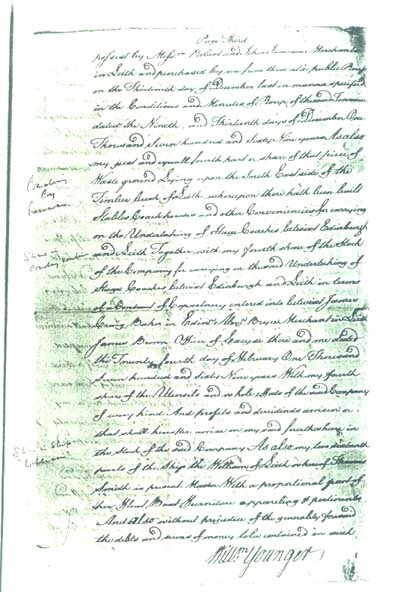 Page Third
posest by Messrs Robert and John Jamesons Merchants
in Leith and purchased by me from them at a publick Roup
on the Thirteenth day of December last in manner specified
in the Conditions and Minutes of Roup of the said Tenement
dated the Nineth and Thirteenth days of December One
Thousand Seven hundred and Sixty Nine years As also
my just and equall fourth part or share of that piece of
Waste ground Lying upon the South East side of the
Timber bush of Leith whereupon there hath been built
Stables Coachhouses and other Conveniencies for carrying
on the Undertaking of Stage Coaches betwixt Edinburgh
and Leith Together with my fourth share of the Stock
of the Company for carrying on the said Undertaking of
Stage Coaches betwixt Edinburgh and Leith in terms
of a Contract of Copartnery entered into betwixt James
Craig Baker in Edinr Bryce Merchant in Leith
James Brown Officer of Excise there and me dated
the Twenty fourth day of February One Thousand
Seven hundred and Sixty Nine years With my fourth
share of the Utensils and whole Effects of the said Company
of every kind And profits and dividends arisen or
that shall hereafter arise on my said fourth share in
the Stock of the said Company As also my two sixteenth
parts of the Ship the William of Leith whereof Thomas
Smith is present Master With a proportional part of
her Float Boat Furniture apparelling & pertinents
And also without prejudice of the generality foresaid
the debts and sums of money contained in such
Willm Younger